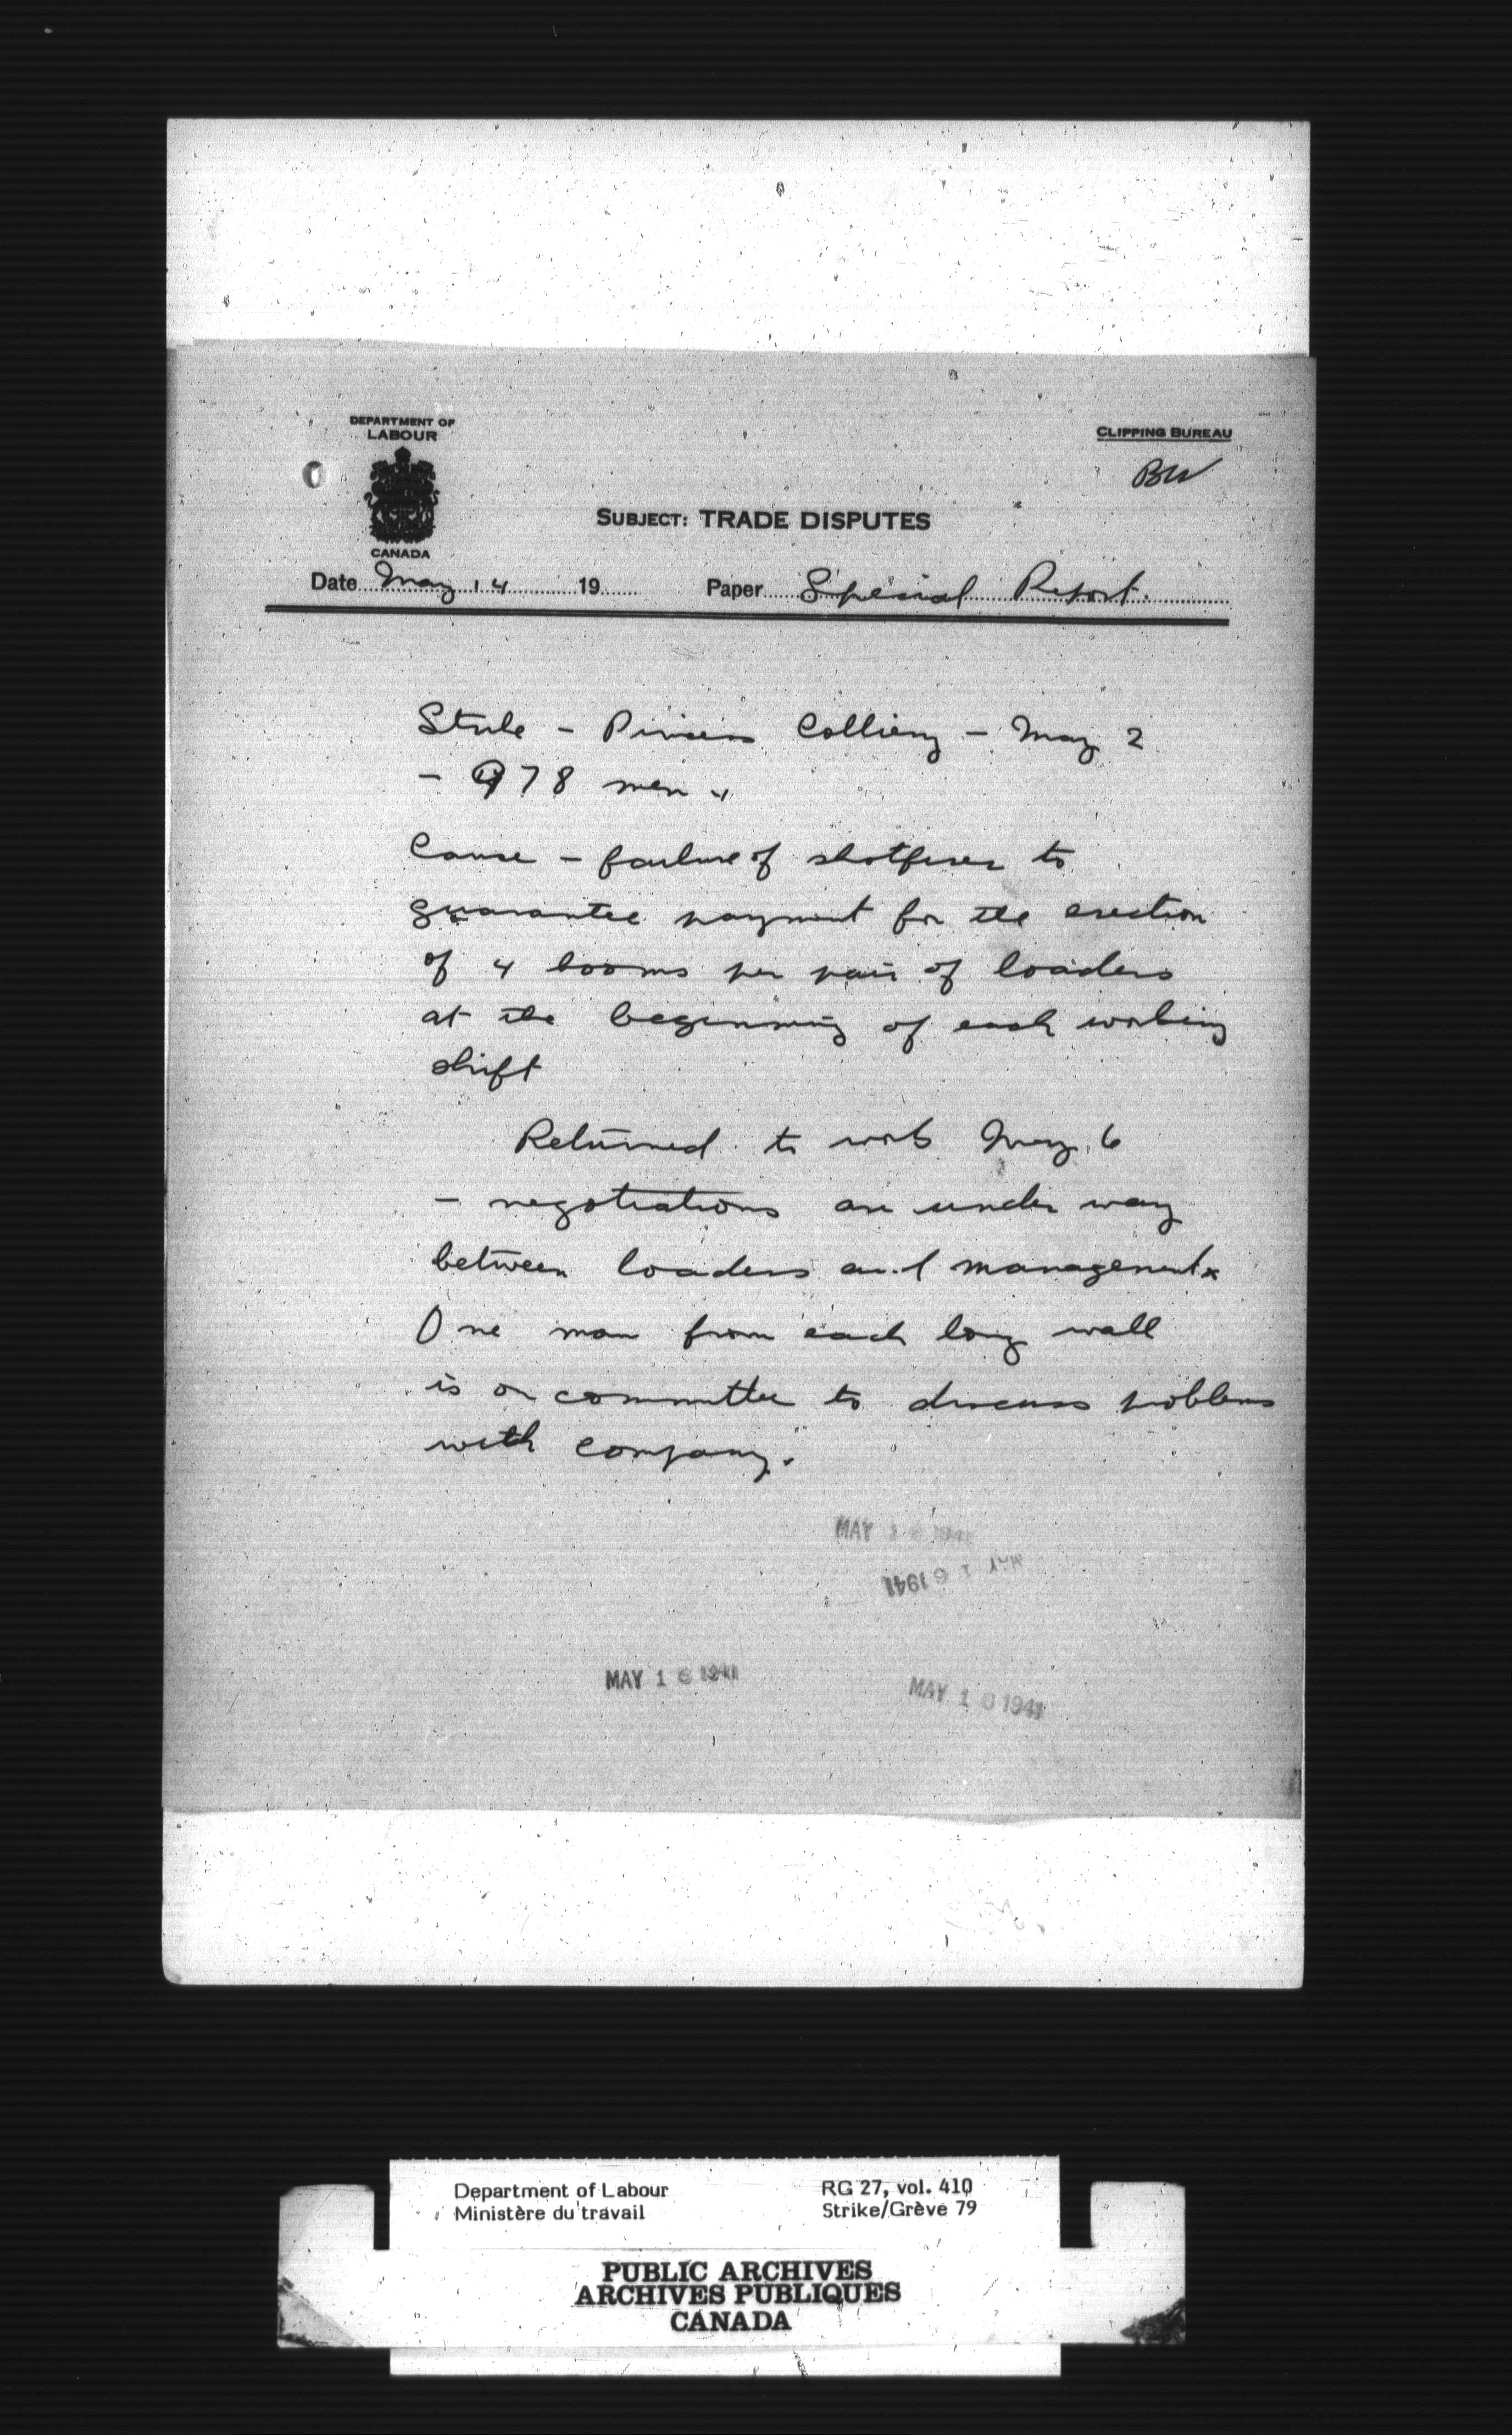 DEPARTMENT OF
LABOUR
CANADA
CLIPPING BUREAU
BW
SUBJECT: TRADE DISPUTES
Date May 14 19 Paper Special Report.
Strike - Princess Colliery - May 2
- 978 men.
Cause - failure of shotfirer to
guarantee payment for the erection
of 4 booms per pair of loaders
at the beginning of each working
shift
Returned to work May 6
- negotiations are under way
between loaders and management
One man from each long wall
is on committee to discuss problems
with company.
MAY 16 1941
MAY 16 1941
MAY 16 1941
MAY 16 1941
Department of Labour RG 27, vol. 410
Ministère du travail Strike/Grève 79
PUBLIC ARCHIVES
ARCHIVES PUBLIQUES
CANADA